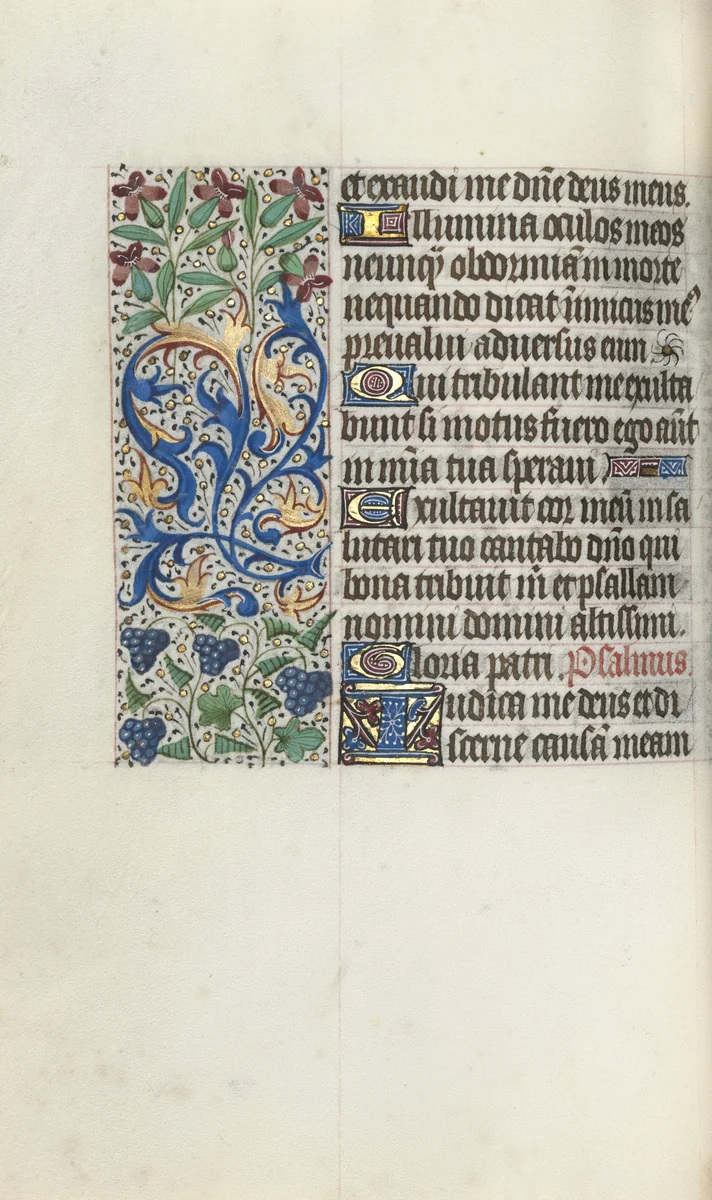 et exaudi me dn̄e deus meus.
Illumina oculos meos
neunqȝ obdormiā in morte
nequando dicat īnimicus me᷒
preualui aduersus eum
Qui tribulant me exulta
bunt si motus fuero ego aūt
in mīa tua speraui
Exultauit cor meū in sa
lutari tuo cantabo dn̄o qui
bona tribuit m̄ et psallam
nomini domini altissimi.
Gloria patri. Psalmus.
Iudica me deus et di
scerne causā meam